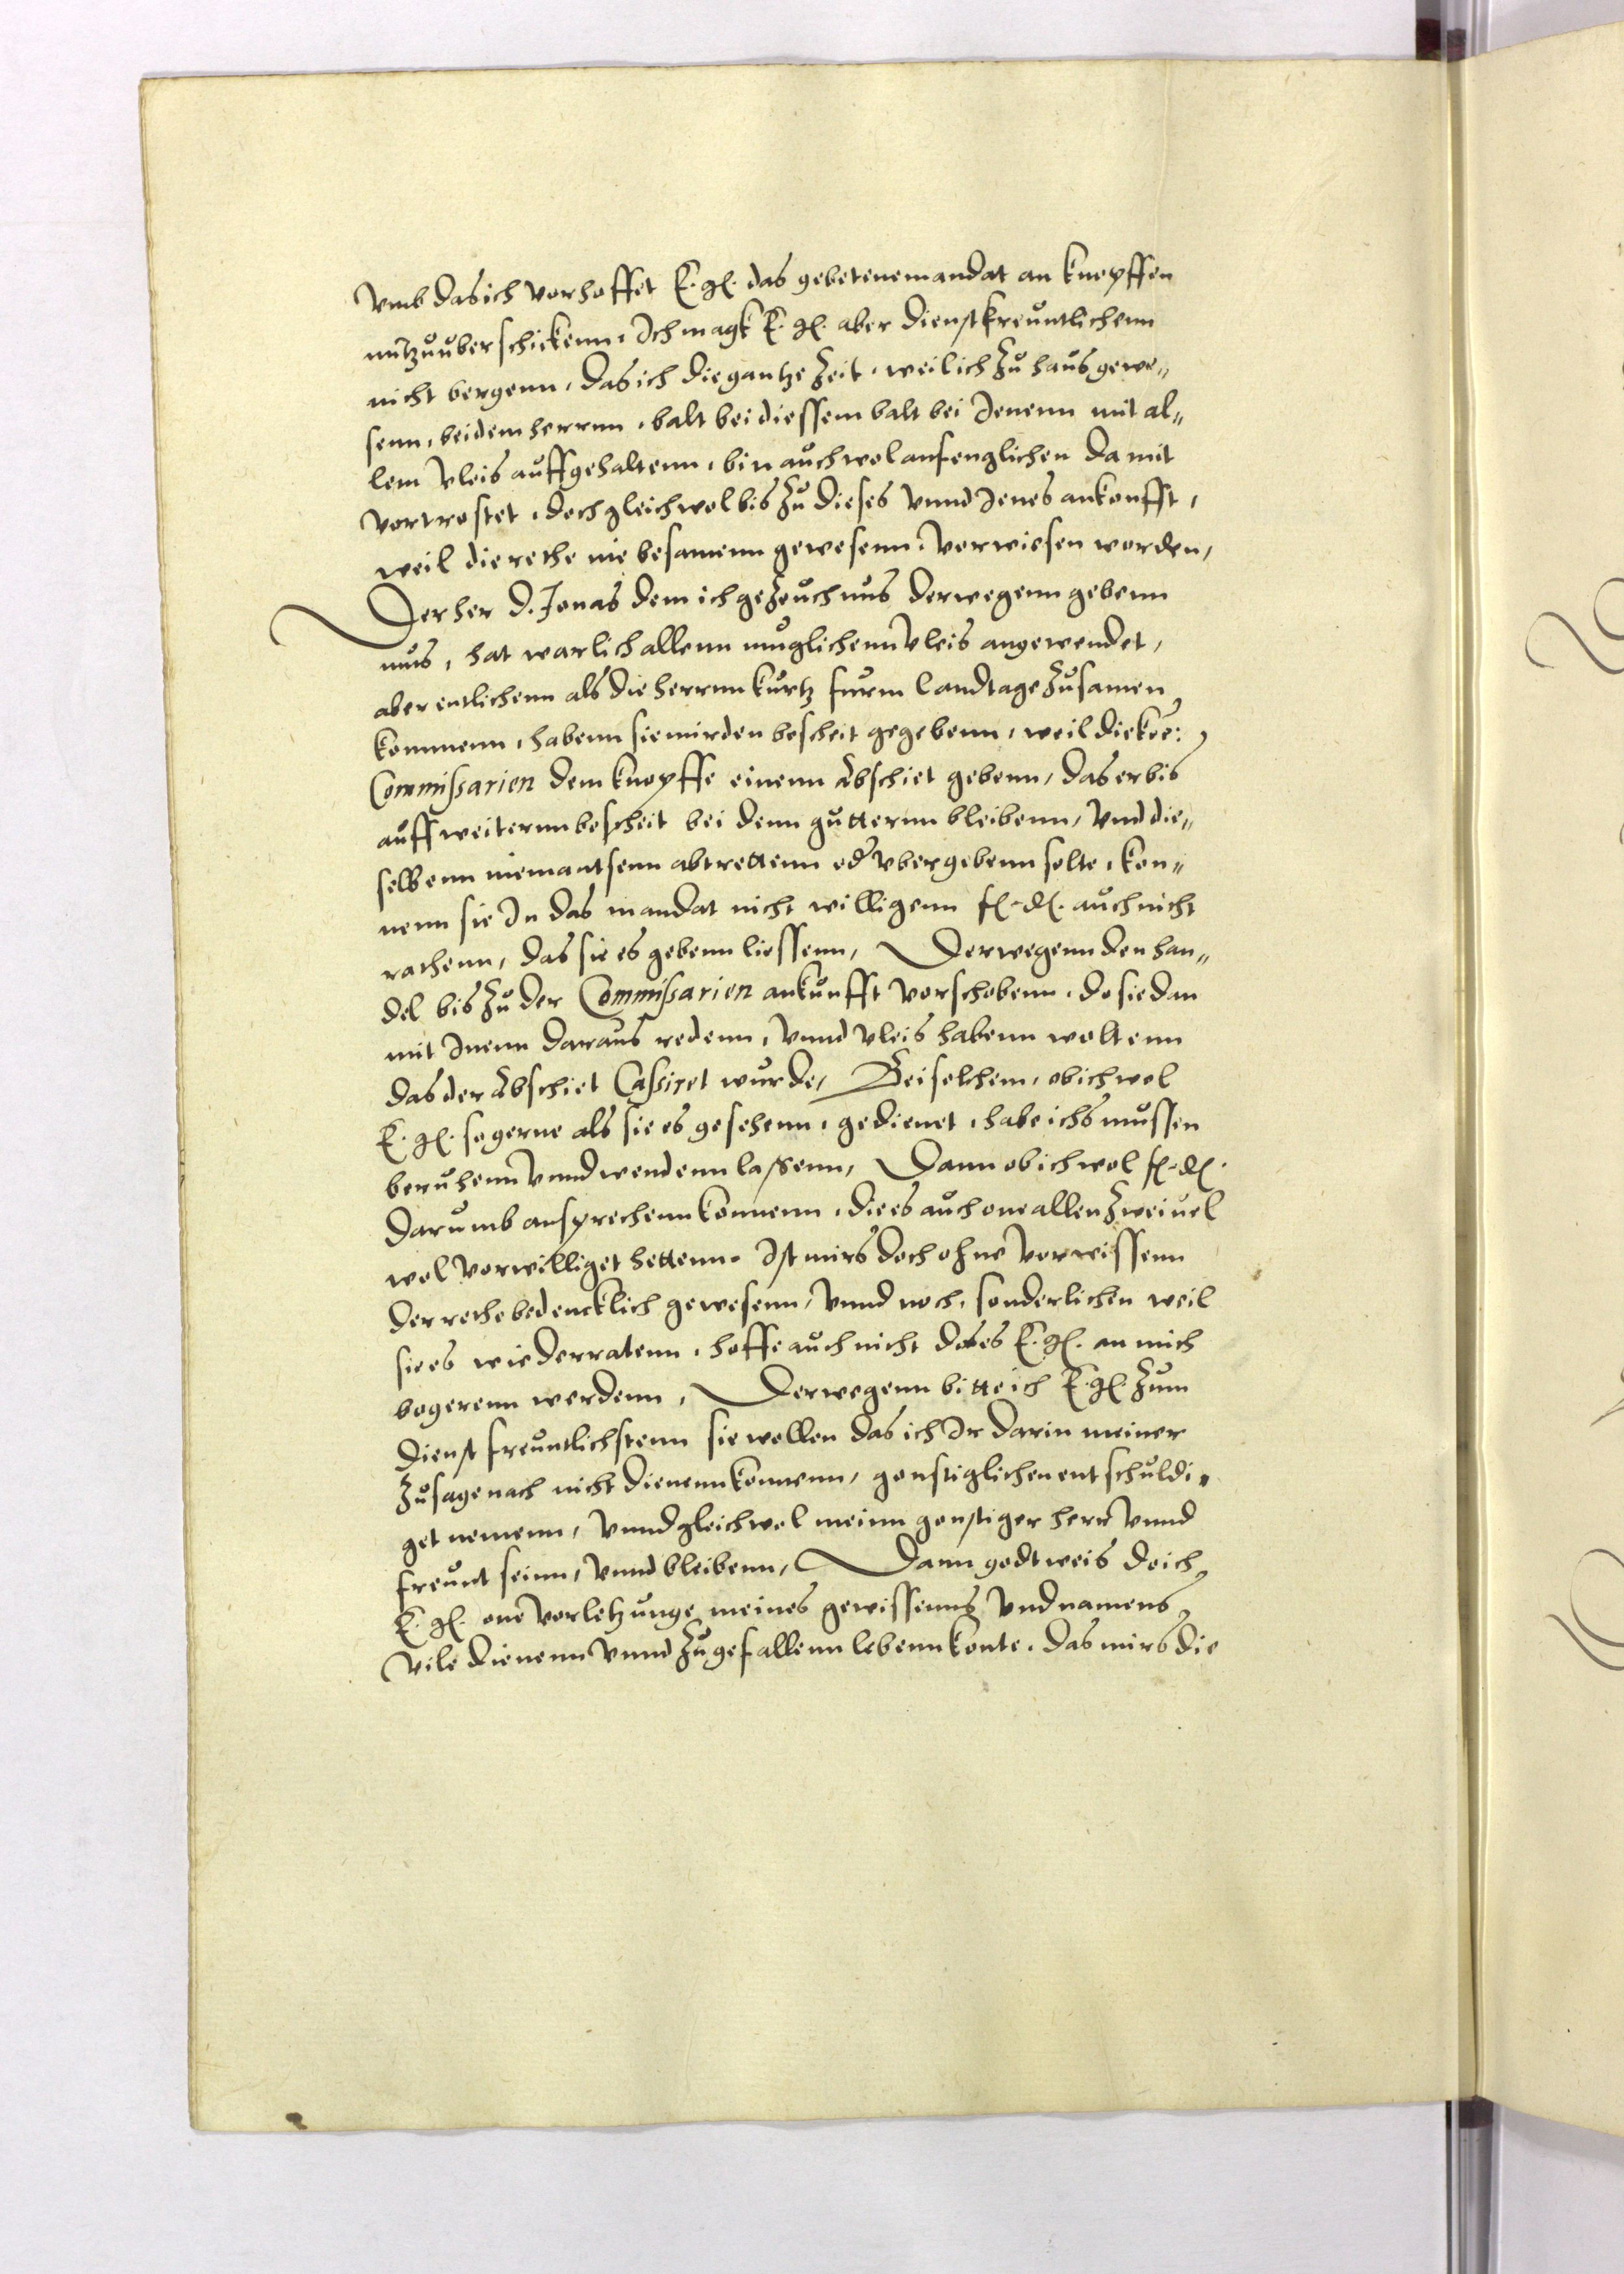 vmb das ich vorhoffet E. gl. das gebetene mandat an knopffen
mitzuuberschickenn, Ich magk E. gl. aber dienstfreuntlichenn
nicht bergenn, das ich die gantze Zeit, weil ich zu haus gewe„
senn, bei dem herrnn, balt bei diessem balt bei Jenenn mit al„
lem vleis auffgehaltenn, bin auch wol anfenglichen damit
vortrostet, doch gleichwol bis zu dieses vnnd Jenes ankonfft,
weil die rethe nie besamenn gewesenn, vorwiesen worden,
Der her D. Jonas dem ich gezeuchnus derwegenn gebenn
mus, hat warlich allenn muglichenn vleis angewendet,
aber entlichenn als die herrnn kurtz furm landtage zusamen
kommenn, habenn sie mir den bescheit gegebenn, weil die
Commissarien dem knopffe einenn Abschiet gebenn, das er bis
auff weiternn bescheit bei denn gutternn bleibenn, vnd die„
selbenn niemantsenn abtrettenn oder vbergebenn solte, kon„
nenn sie In das mandat nicht willigenn f. d. auch nicht
rathenn, das sie es gebenn liessenn, Derwegenn den han„
del bis zu der Commissarien ankunfft vorschobenn, do sie dan
mit Inenn daraus redenn, vnnd vleis habenn woltenn
das der Abschiet Cassiret wurde, Bei solchem, ob ich wol
E. gl. so gerne als sie es gesehenn, gedienet, habe ichs mussen
beruhenn vnnd wendenn lassenn, Dann ob ich wol f. d.
darumb ansprechenn konnenn, die es auch one allen zweiuel
wol vorwilliget hettenn, Ist mirs doch ohne vorwissenn
der rethe bedencklich gewesenn, vnnd noch, sonderlichen weil
sie es wiederratenn, hoffe auch nicht das es E. gl. an mich
begerenn werdenn, Derwegenn bitte ich E. gl. zum
dienstfreuntlichstenn sie wollen das ich Ir darin meiner
zusage nach nicht dienenn konnenn, gonstiglichen entschuldi„
get nemenn, vnnd gleichwol meinn gonstiger herr vnnd
freunt seinn, vnnd bleibenn, Dann godt weis do ich
E. gl. one vorletzunge meines gewissenns vnd namens
vile dienenn vnnd zugefallenn lebenn konte, das mirs die